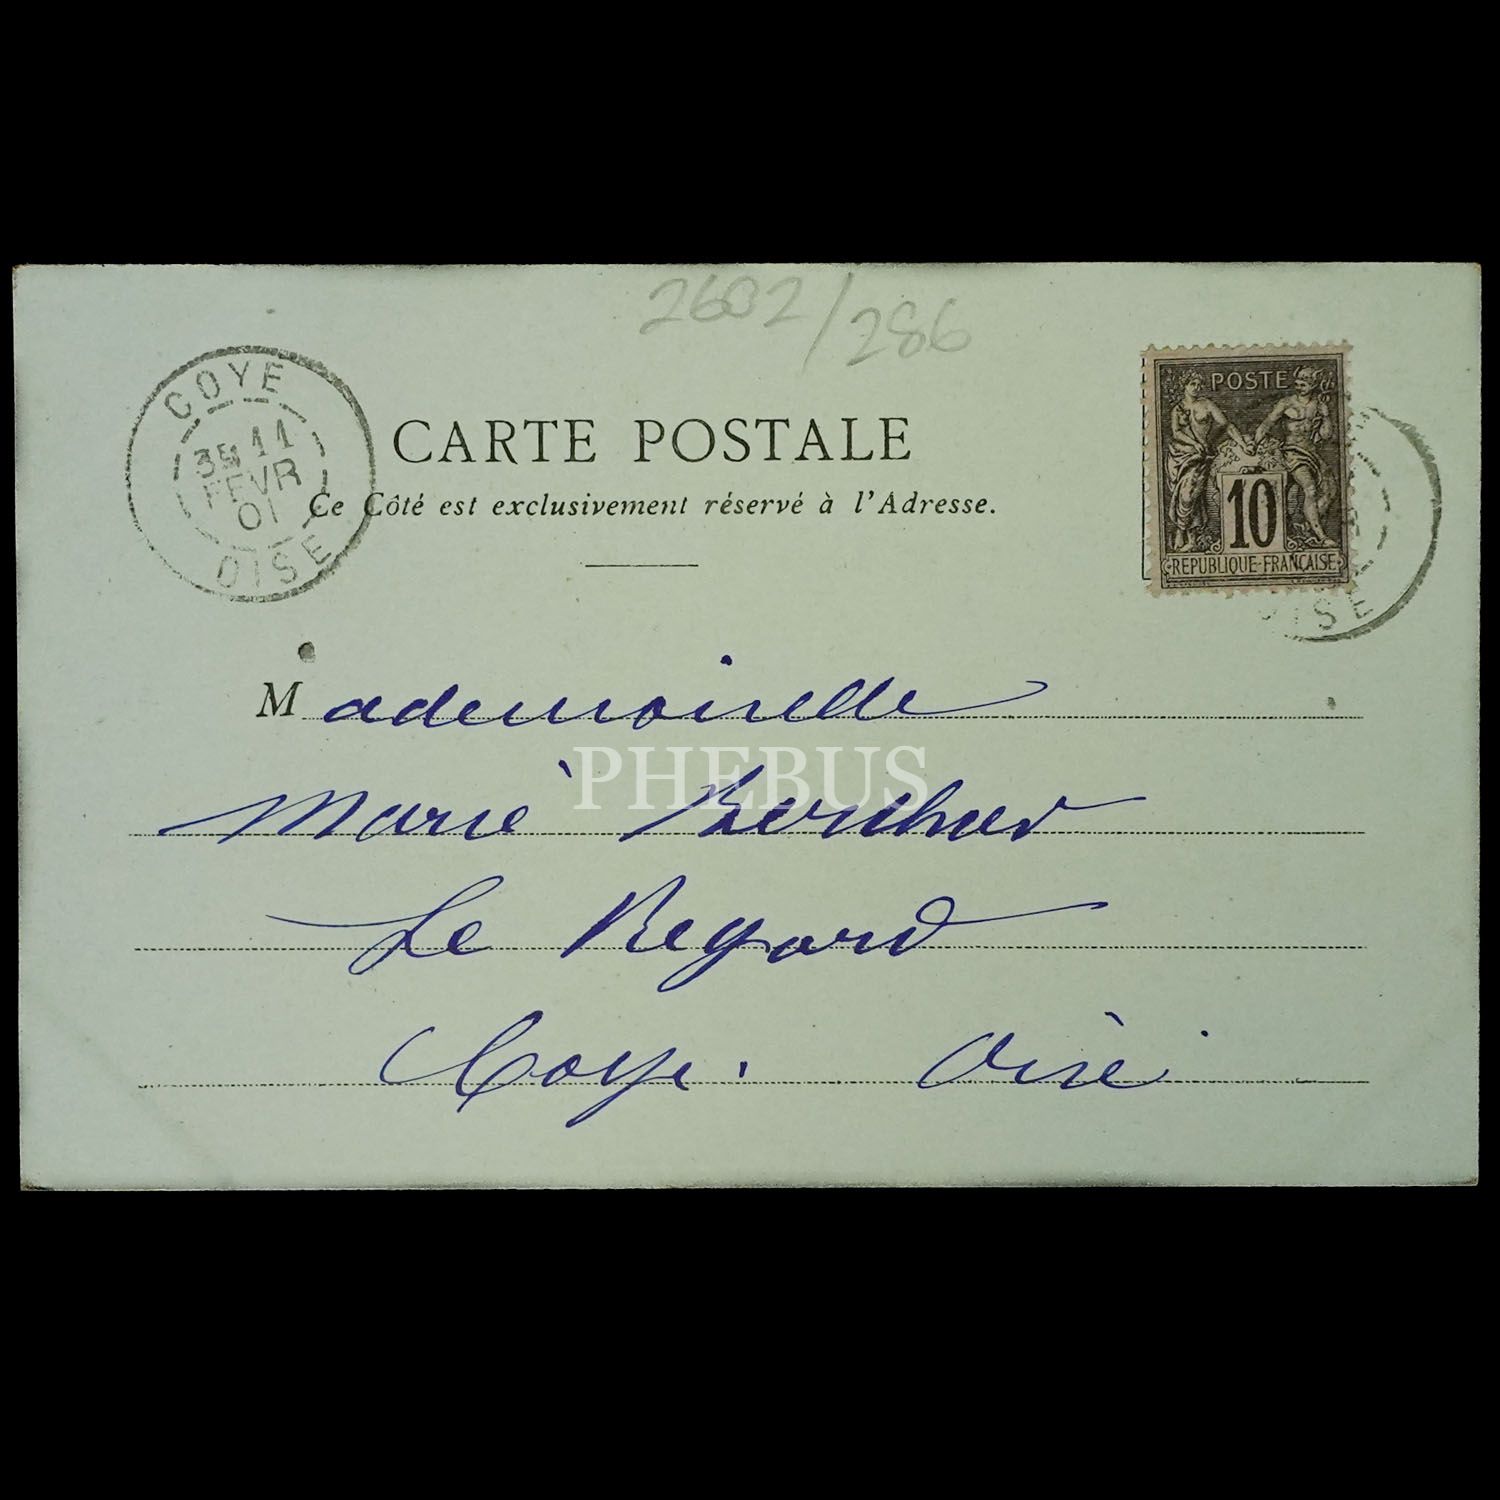 2602/286
COYE
3E 11
FEVR
01
OISE
CARTE POSTALE
Ce Côté est exclusivement réservé à l'Adresse.
POSTE
10
REPUBLIQUE FRANÇAISE
OISE
Mademoiselle
PHEBUS
Marie
Le Regard
Coye. Oise